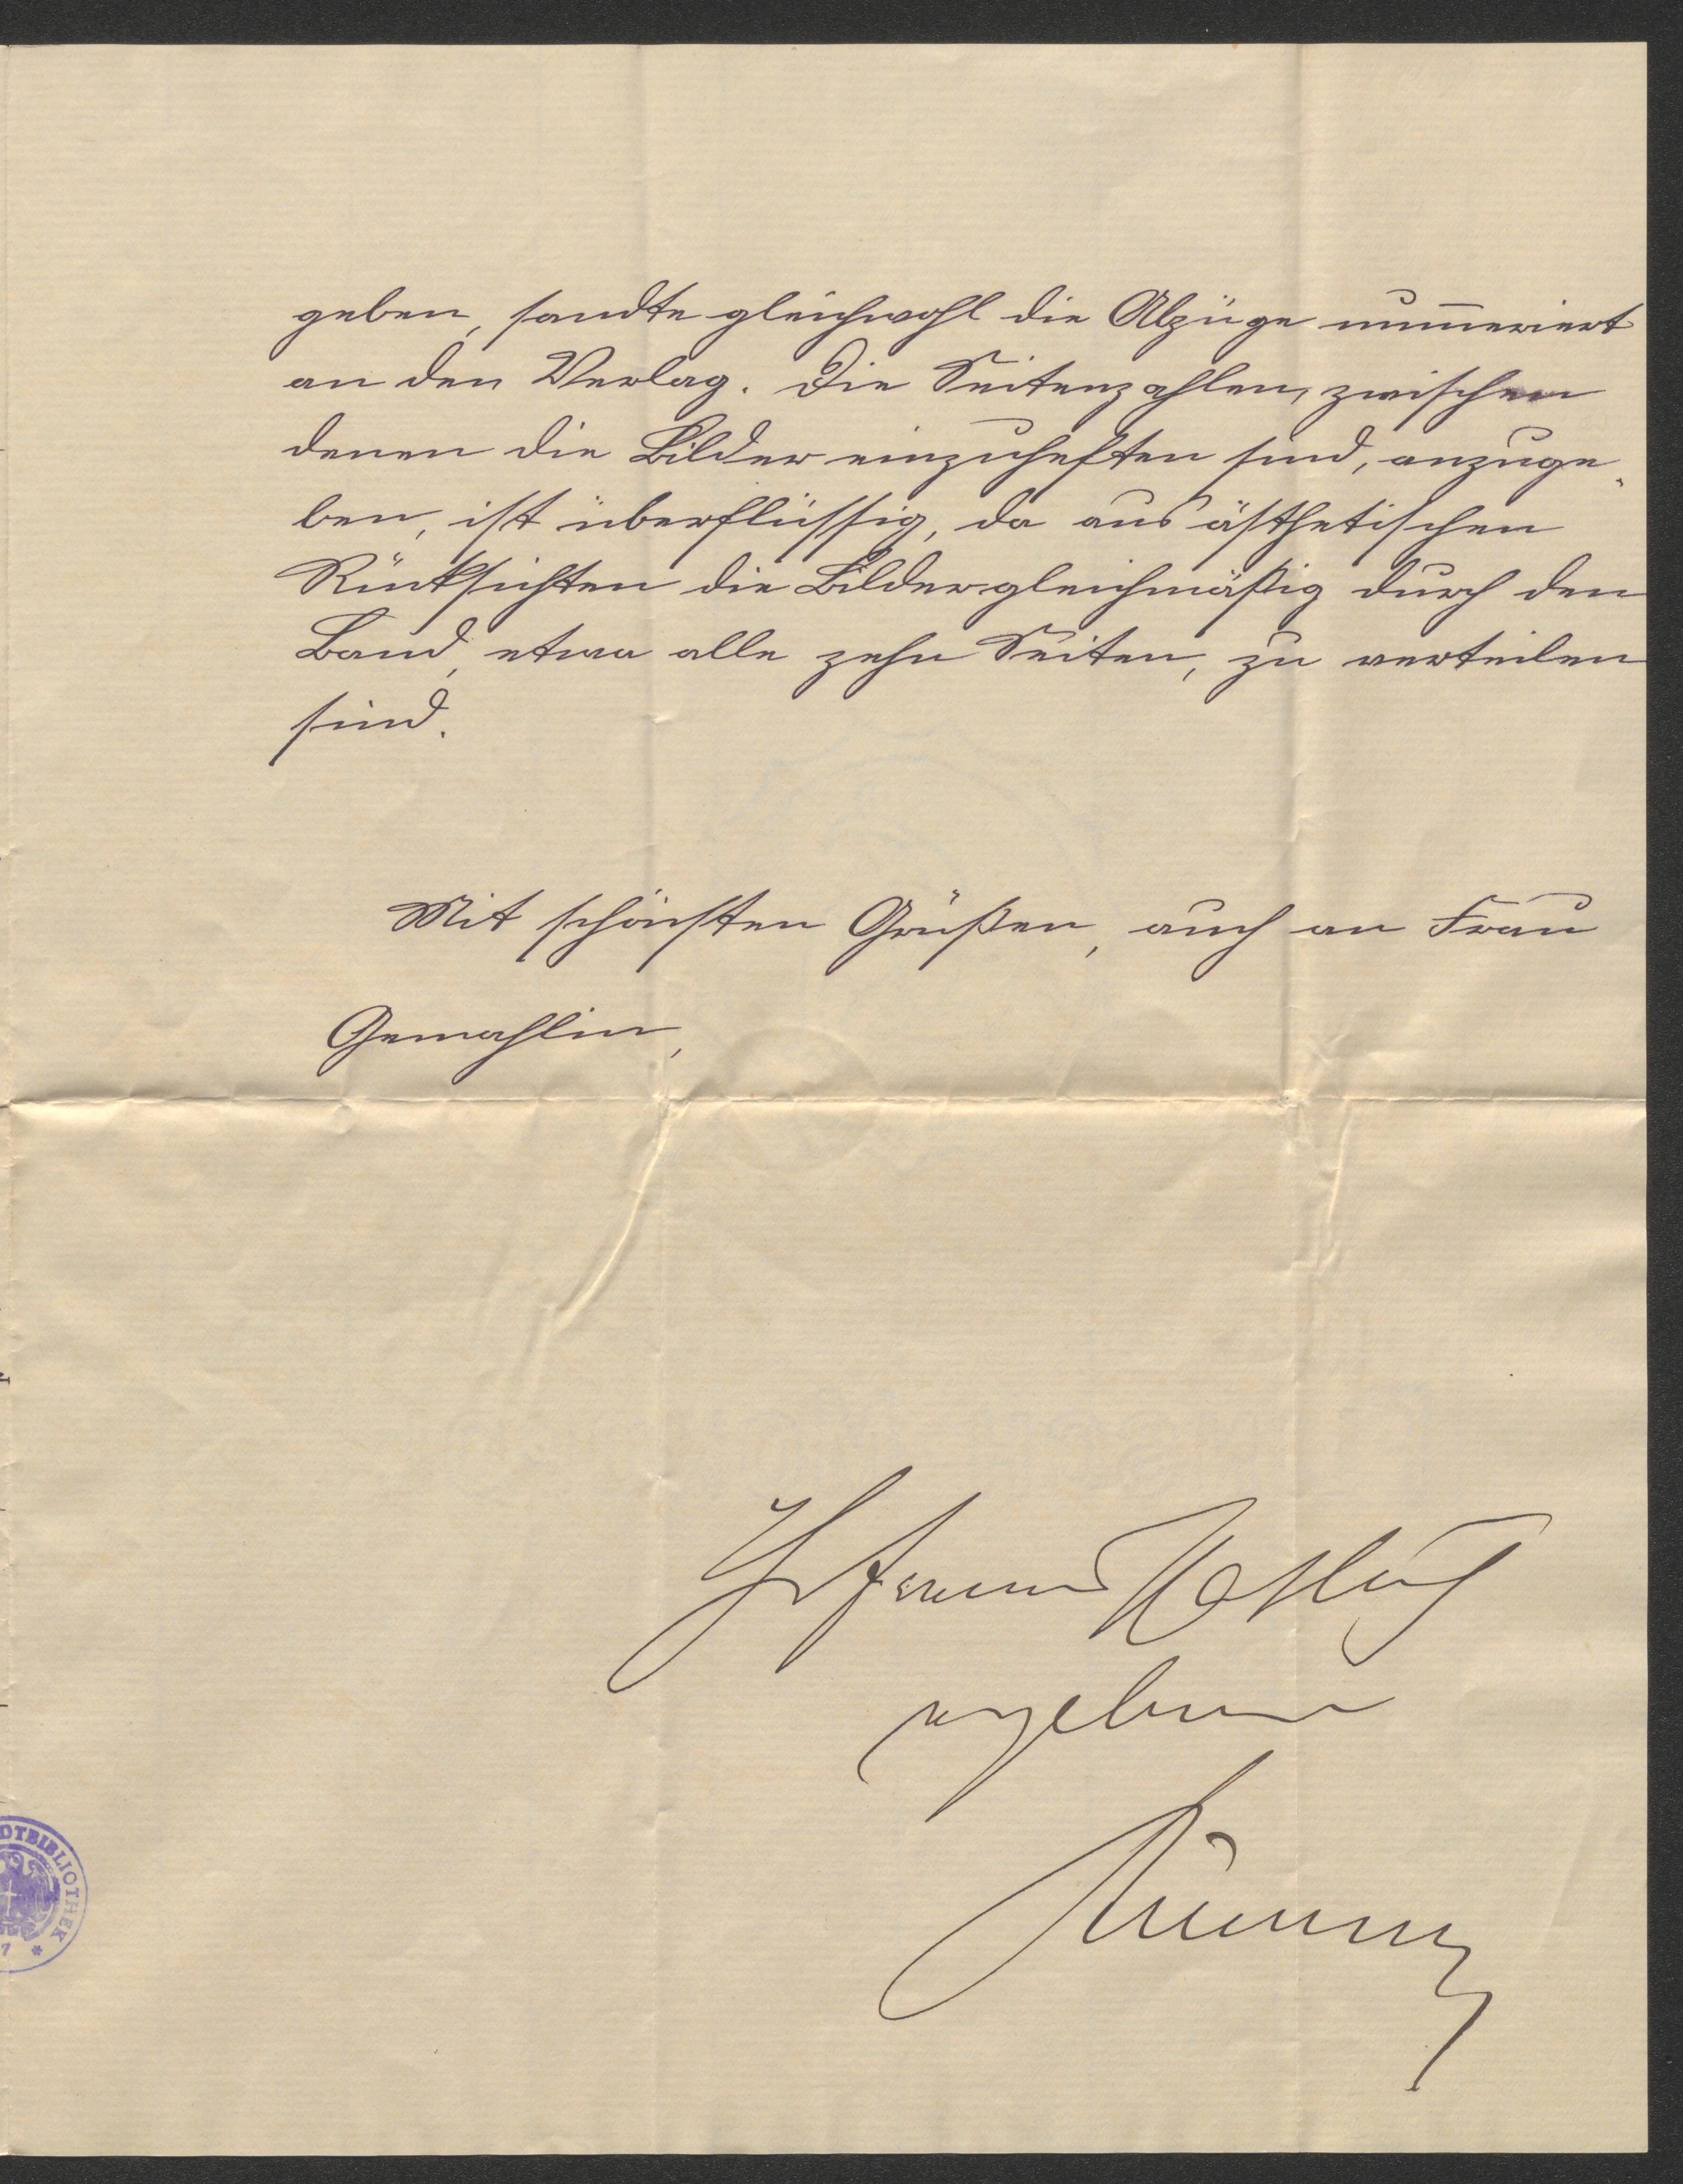 geben, sandte gleichwohl die Abzüge num̅eriert
an den Verlag. Die Seitenzahlen, zwischen
denen die Bilder einzuheften sind, anzuge-
ben, ist überflüssig, da aus ästhetischen
Rücksichten die Bilder gleichmäßig durch den
Band, etwa alle zehn Seiten, zu verteilen
sind.
Mit schönsten Grüßen, auch an Frau
Gemahlin,
Ihr
ergebener
DTBIBLIOTHEK
7 *